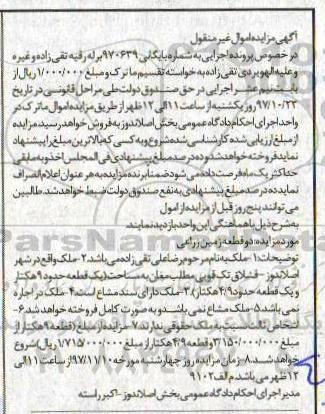 آگهی مزایده اموال غیر منقول
در خصوص پرونده اجرایی به شماره بایگانی ۹۷۰۶۳۹ له رقیه تقی زاده و غیره
و علیه الهویردی تقی زاده به خواسته تقسیم ماترک و مبلغ ۱/۰۰۰/۰۰۰ ریال از
بابت نیم عشر اجرایی در حق صندوق دولت طی مراحل قانونی در تاریخ
۹۷/۱۰/۲۳ روز یکشنبه از ساعت ۱۱ الی ۱۲ ظهر از طریق مزایده اموال ماترک در
واحد اجرای احکام دادگاه عمومی بخش اصلاندوز به فروش خواهد رسید مزایده
از مبلغ ارزیابی شده کارشناسی شده شروع و به کسی که بالاترین مبلغ را پیشنهاد
نماید فروخته خواهد شد و ده درصد مبلغ پیشنهادی فی المجلس اخذ و به مابقی
حداکثر یک ماه فرصت داده می شود ضمنا برنده مزایده به هر عنوان اعلام انصراف
نماید ده درصد مبلغ پیشنهادی به نفع صندوق دولت ضبط خواهد شد. طالبین
می توانند پنج روز قبل از مزایده از اموال
به شرح ذیل با هماهنگی این واحد بازدید نمایند.
مورد مزایده دو قطعه زمین زراعی
توضیحات ۱- ملک به نام مرحوم رضاعلی تقی زاده می باشد. ۲- ملک واقع در شهر
اصلاندوز - قشلاق تک قویی مطلب مغان به مساحت (یک قطعه حدود ۹ هکتار
و یک قطعه حدود ۴/۹ هکتار) ۳- ملک دارای سند مشاع است ۴- ملک در اجاره
نمی باشد ۵- ملک مشاع نمی باشد و به صورت کامل فروخته خواهد شد ۶-
اشخاص ثالث نسبت به ملک حقوقی ندارند ۷- مزایده از مبلغ (قطعه ۹ هکتار از
مبلغ ۳/۱۵۰/۰۰۰/۰۰۰ و قطعه ۴/۹ هکتار از مبلغ ۱/۷۱۵/۰۰۰/۰۰۰ ریال) شروع
خواهد شد. ۸- زمان مزایده روز چهارشنبه مورخه ۹۷/۱۱/۱۰ از ساعت ۱۱ الی
۱۲ ظهر می باشد م الف ۹۱۰۲
مدیر اجرای احکام دادگاه عمومی بخش اصلاندوز - اکبر راسته